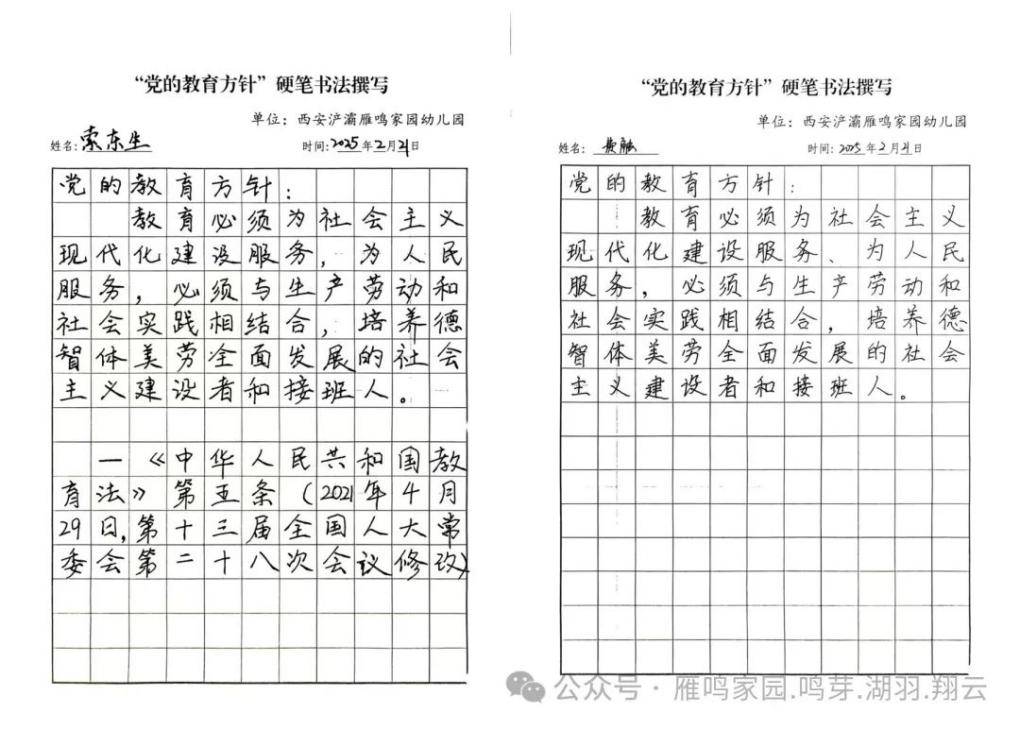 “党的教育方针”硬笔书法撰写
单位：西安浐灞雁鸣家园幼儿园
姓名：索东生 时间：2025年2月21日
党的教育方针：
教育必须为社会主义
现代化建设服务，为人民
服务，必须与生产劳动和
社会实践相结合，培养德
智体美劳全面发展的社会
主义建设者和接班人。
一《中华人民共和国教
育法》第五条（2021年4月
29日，第十三届全国人大常
委会第二十八次会议修改）
“党的教育方针”硬笔书法撰写
单位：西安浐灞雁鸣家园幼儿园
姓名： 时间：2025年2月21日
党的教育方针：
教育必须为社会主义
现代化建设服务、为人民
服务，必须与生产劳动和
社会实践相结合，培养德
智体美劳全面发展的社会
主义建设者和接班人。
公众号·雁鸣家园.鸣芽.湖羽.翔云